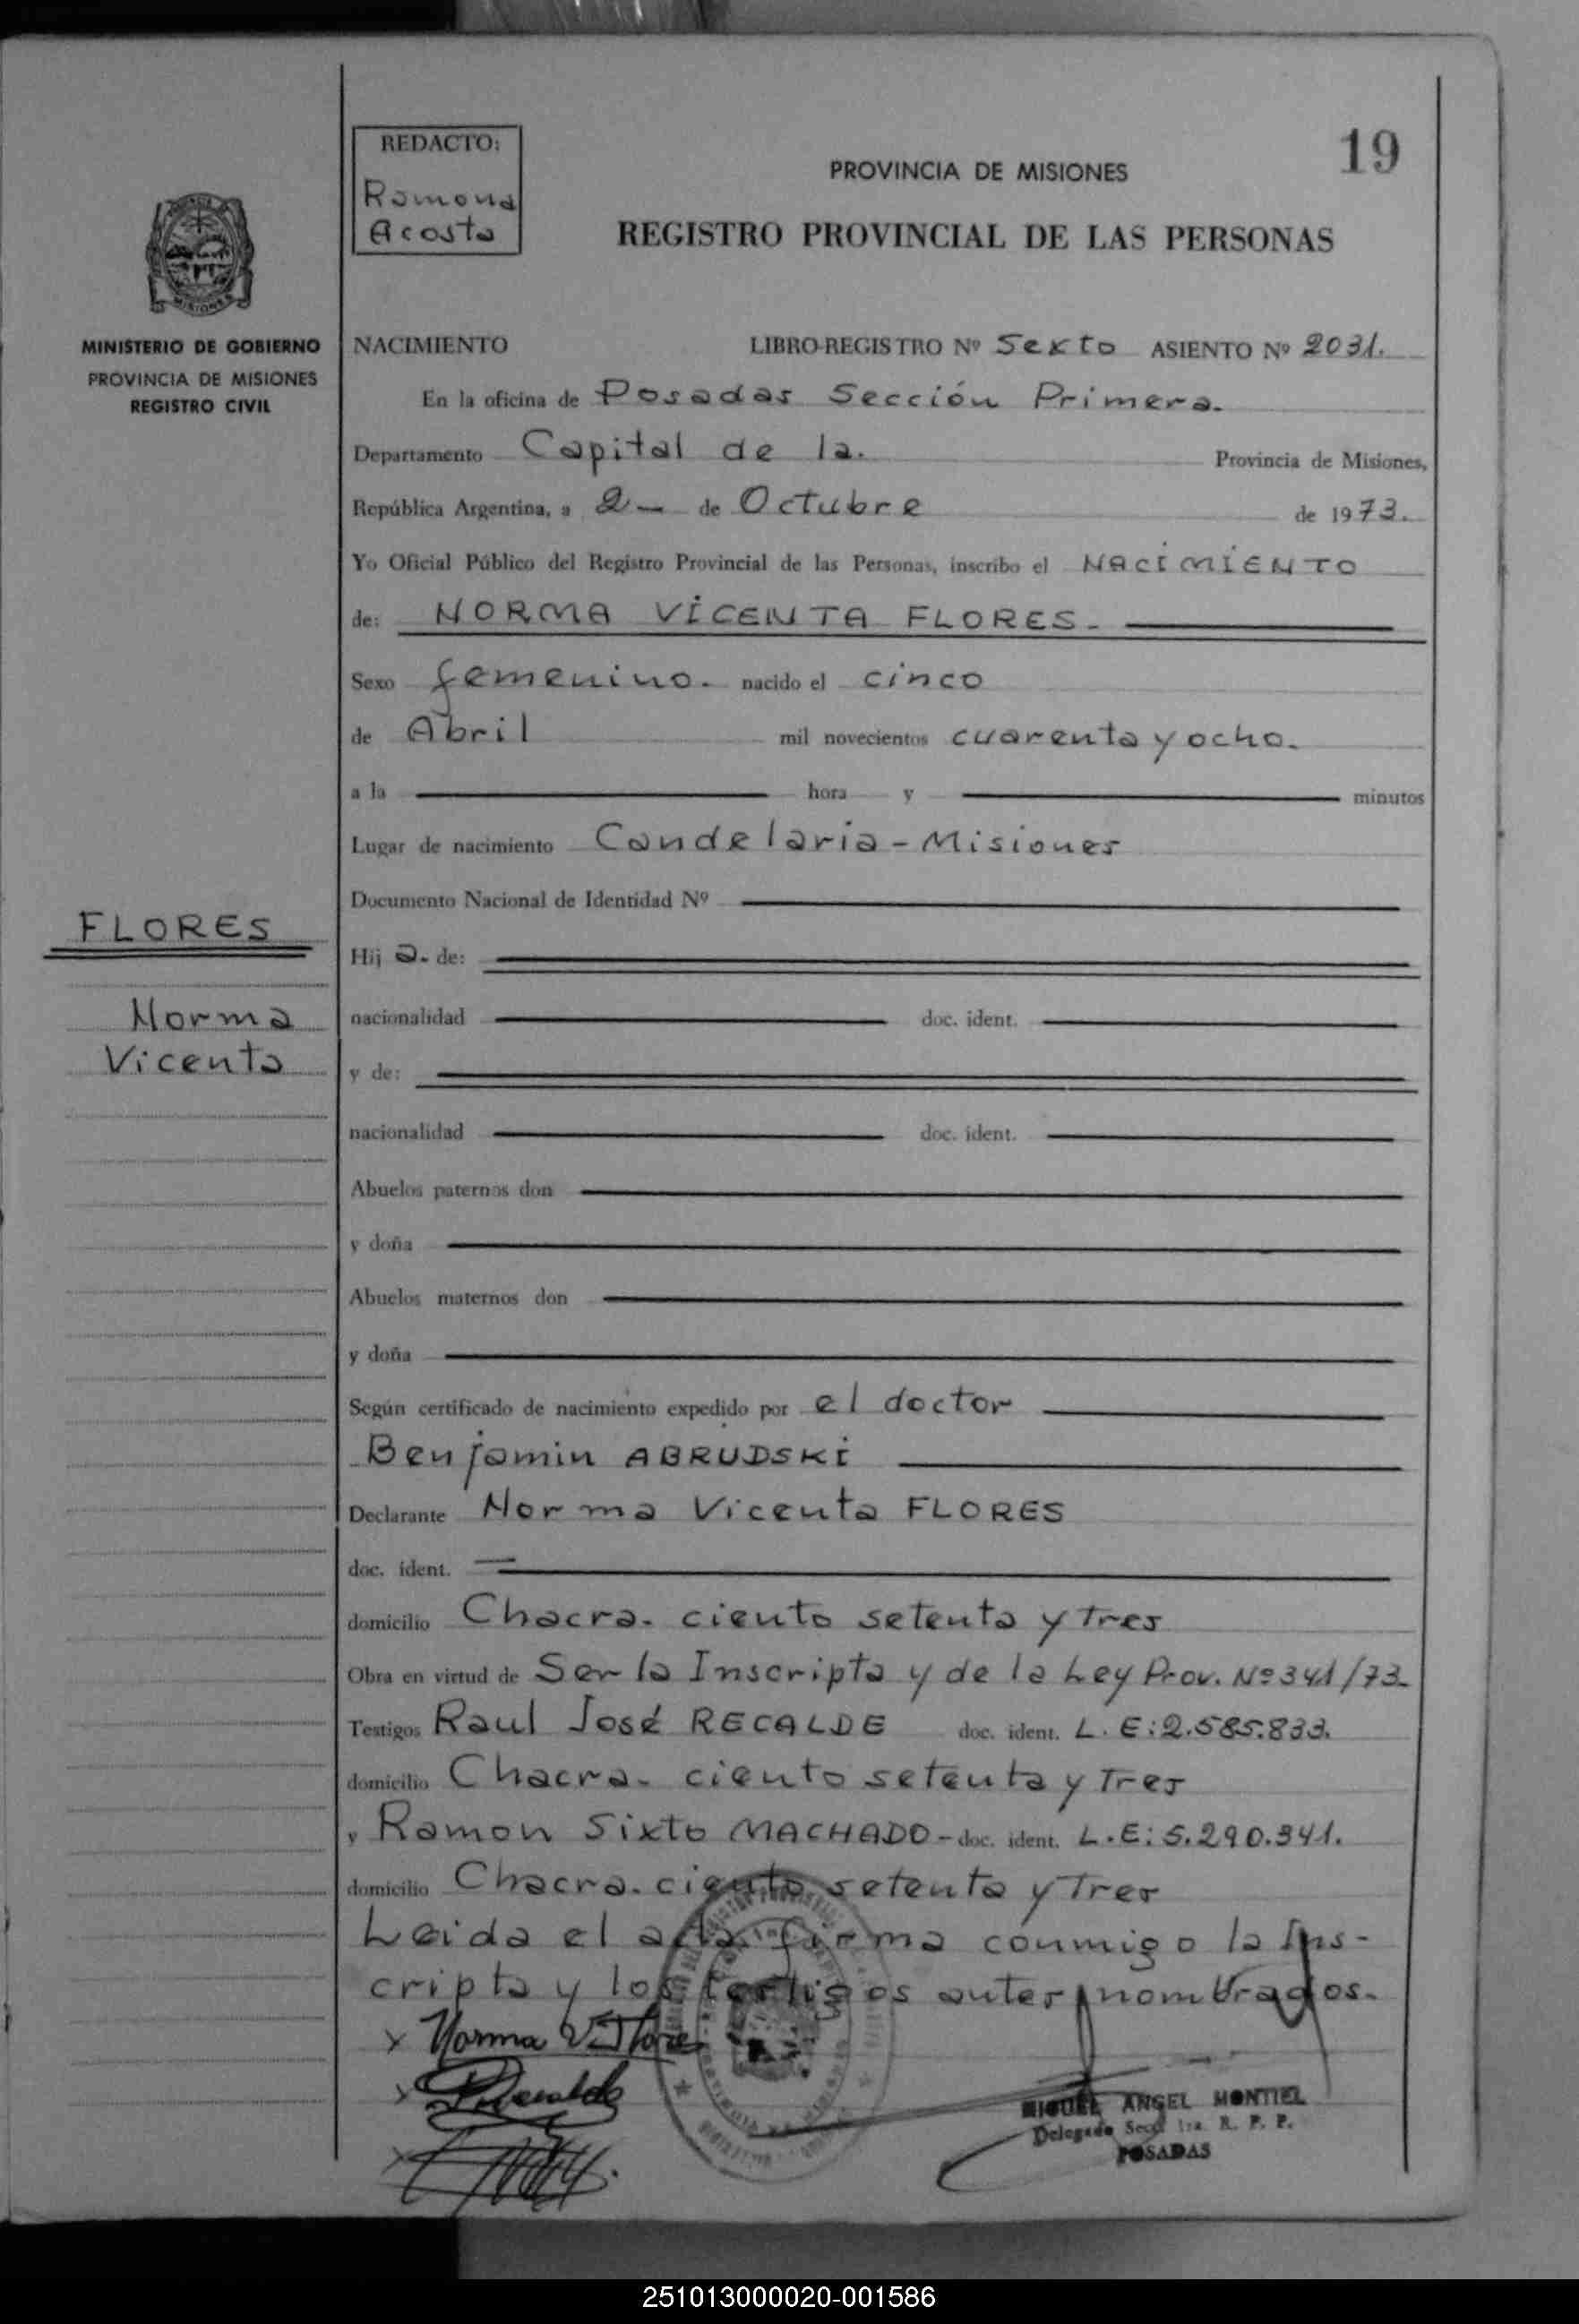 19
REDACTO:
Ramona
Acosta
PROVINCIA DE MISIONES
REGISTRO PROVINCIAL DE LAS PERSONAS
MISIONES
MINISTERIO DE GOBIERNO
PROVINCIA DE MISIONES
REGISTRO CIVIL
NACIMIENTO LIBRO-REGISTRO Nº Sexto ASIENTO Nº 2031.
En la oficina de Posadas Sección Primera.
Departamento Capital de la. Provincia de Misiones,
República Argentina, a 2 - de Octubre de 1973.
Yo Oficial Público del Registro Provincial de las Personas, inscribo el NACIMIENTO
de: NORMA VICENTA FLORES.
Sexo femenino. nacido el cinco
de Abril mil novecientos cuarenta y ocho.
a la hora y minutos
Lugar de nacimiento Candelaria - Misiones
Documento Nacional de Identidad Nº
FLORES
Norma
Vicenta
Hij a. de:
nacionalidad doc. ident.
y de:
nacionalidad doc. ident.
Abuelos paternos don
y doña
Abuelos maternos don
y doña
Según certificado de nacimiento expedido por el doctor
Benjamin ABRUDSKI
Declarante Norma Vicenta FLORES
doc. ident.
domicilio Chacra. ciento setenta y tres
Obra en virtud de Ser la Inscripta y de la Ley Prov. Nº 341/73.
Testigos Raul José RECALDE doc. ident. L. E: 2.585.833.
domicilio Chacra. ciento setenta y tres
y Ramon Sixto MACHADO - doc. ident. L.E: 5.290.341.
domicilio Chacra. ciento setenta y tres
Leida el acta firma conmigo la Ins-
cripta y los testigos antes nombrados.
x Norma V. Flores
x Recalde
x
MIGUEL ANGEL MONTIEL
Delegado Secc. 1ra. R. P. P.
POSADAS
251013000020-001586